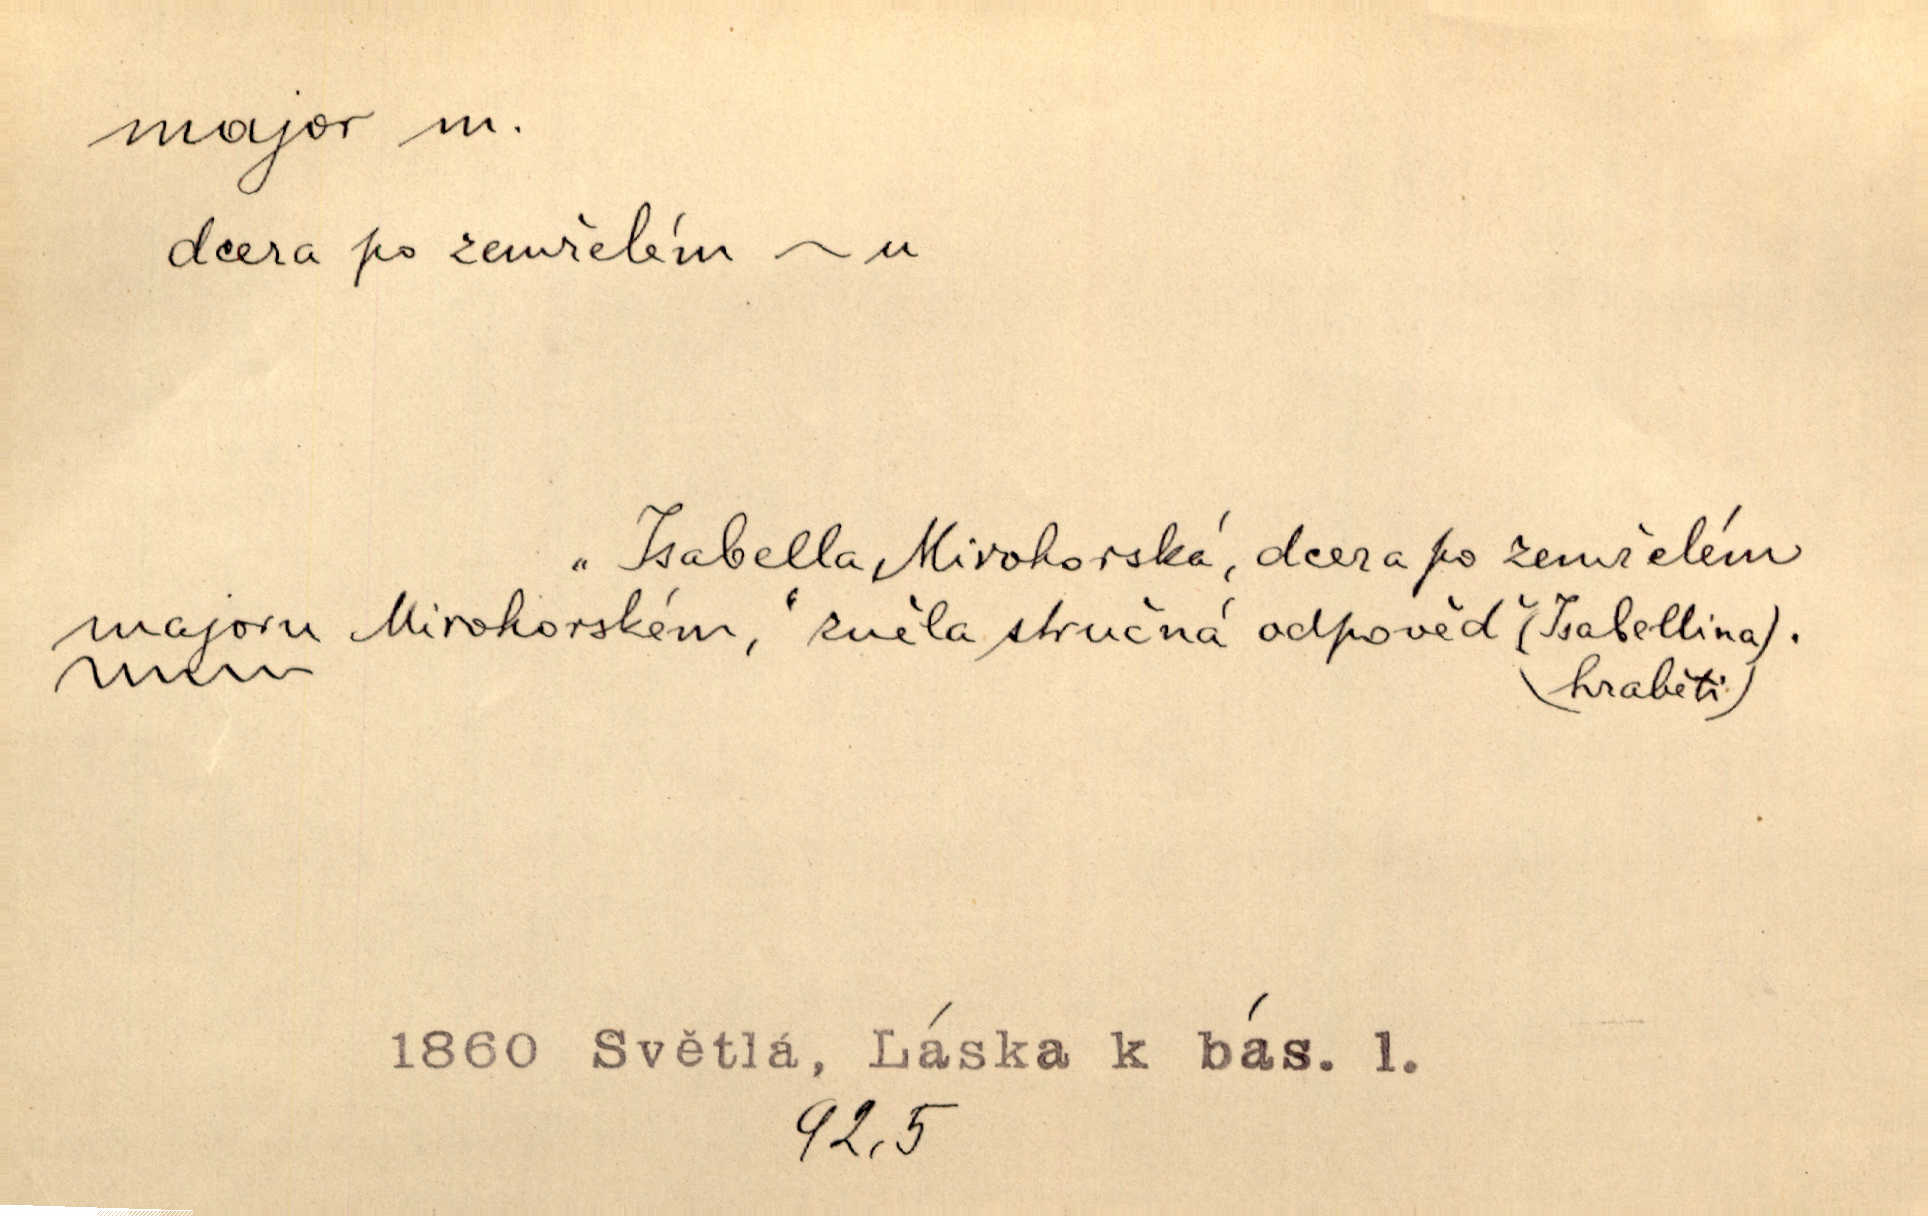 major m.
dcera po zemřelém ~u
„Isabella Mirohorská, dcera po zemřelém
majoru Mirohorském,“ zněla stručná odpověď (Isabellina).
(hraběti)
1860 Světlá, Láska k bás. l.
92,5